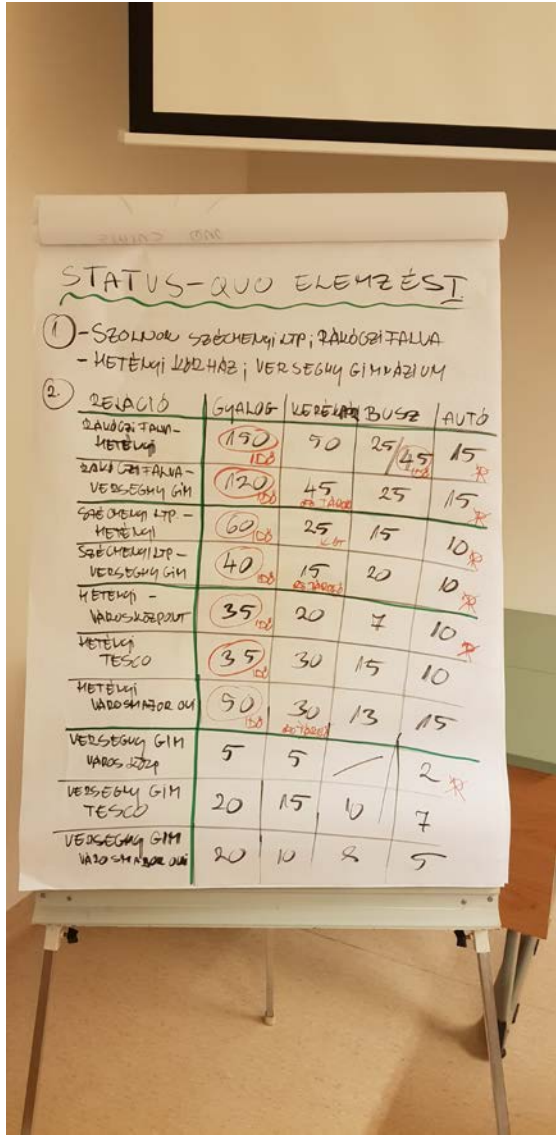 STATUS-QUO ELEMZÉS I.
① - SZOLNOK SZÉCHENYI LTP; RÁKÓCZIFALVA
- HETÉNYI KÓRHÁZ; VERSEGHY GIMNÁZIUM
2. RELÁCIÓ GYALOG KERÉKPÁR BUSZ AUTÓ
RÁKÓCZIFALVA-
HETÉNYI 150 IDŐ 50 25/45 IDŐ 15 P
RÁKÓCZIFALVA-
VERSEGHY GIM 120 IDŐ 45 25 15 P
SZÉCHENYI LTP. -
HETÉNYI 60 IDŐ 25 15 10 P
SZÉCHENYI LTP -
VERSEGHY GIM 40 IDŐ 15 20 10 P
HETÉNYI -
VÁROSKÖZPONT 35 IDŐ 20 7 10 P
HETÉNYI
TESCO 35 IDŐ 30 15 10
HETÉNYI
VÁROSMAJOR OVI 50 IDŐ 30 13 15
VERSEGHY GIM
VÁROSKÖZP 5 5 / 2 P
VERSEGHY GIM
TESCO 20 15 10 7
VERSEGHY GIM
VÁROSMAJOR OVI 20 10 8 5